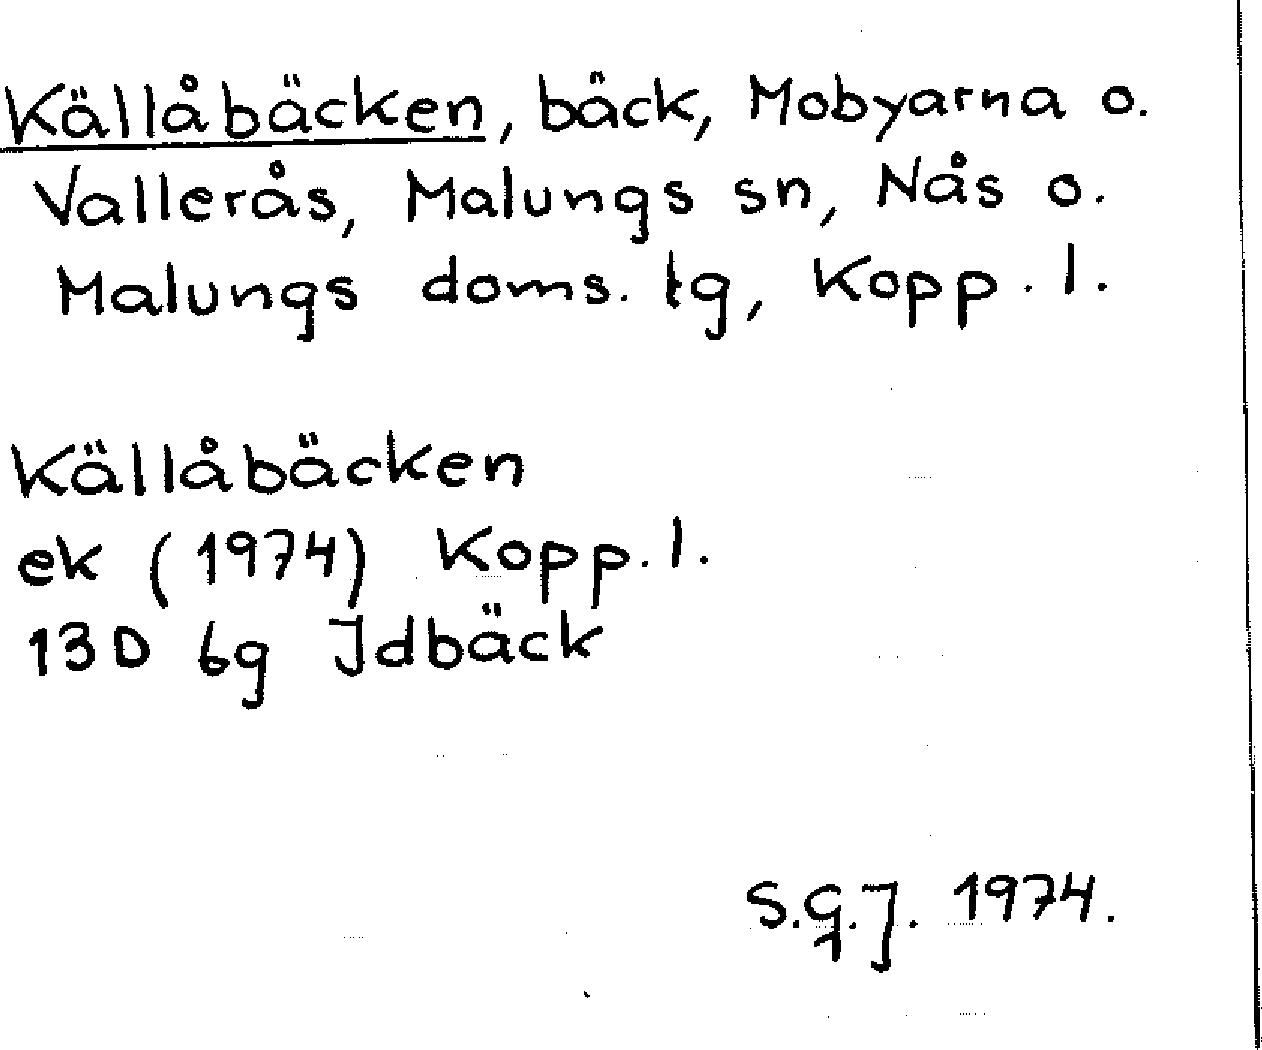 Källåbäcken, bäck, Mobyarna o.
Vallerås, Malungs sn, Nås o.
Malungs doms. tg, Kopp. l.
Källåbäcken
ek (1974) Kopp. l.
13D 6g Idbäck
S.G.J. 1974.